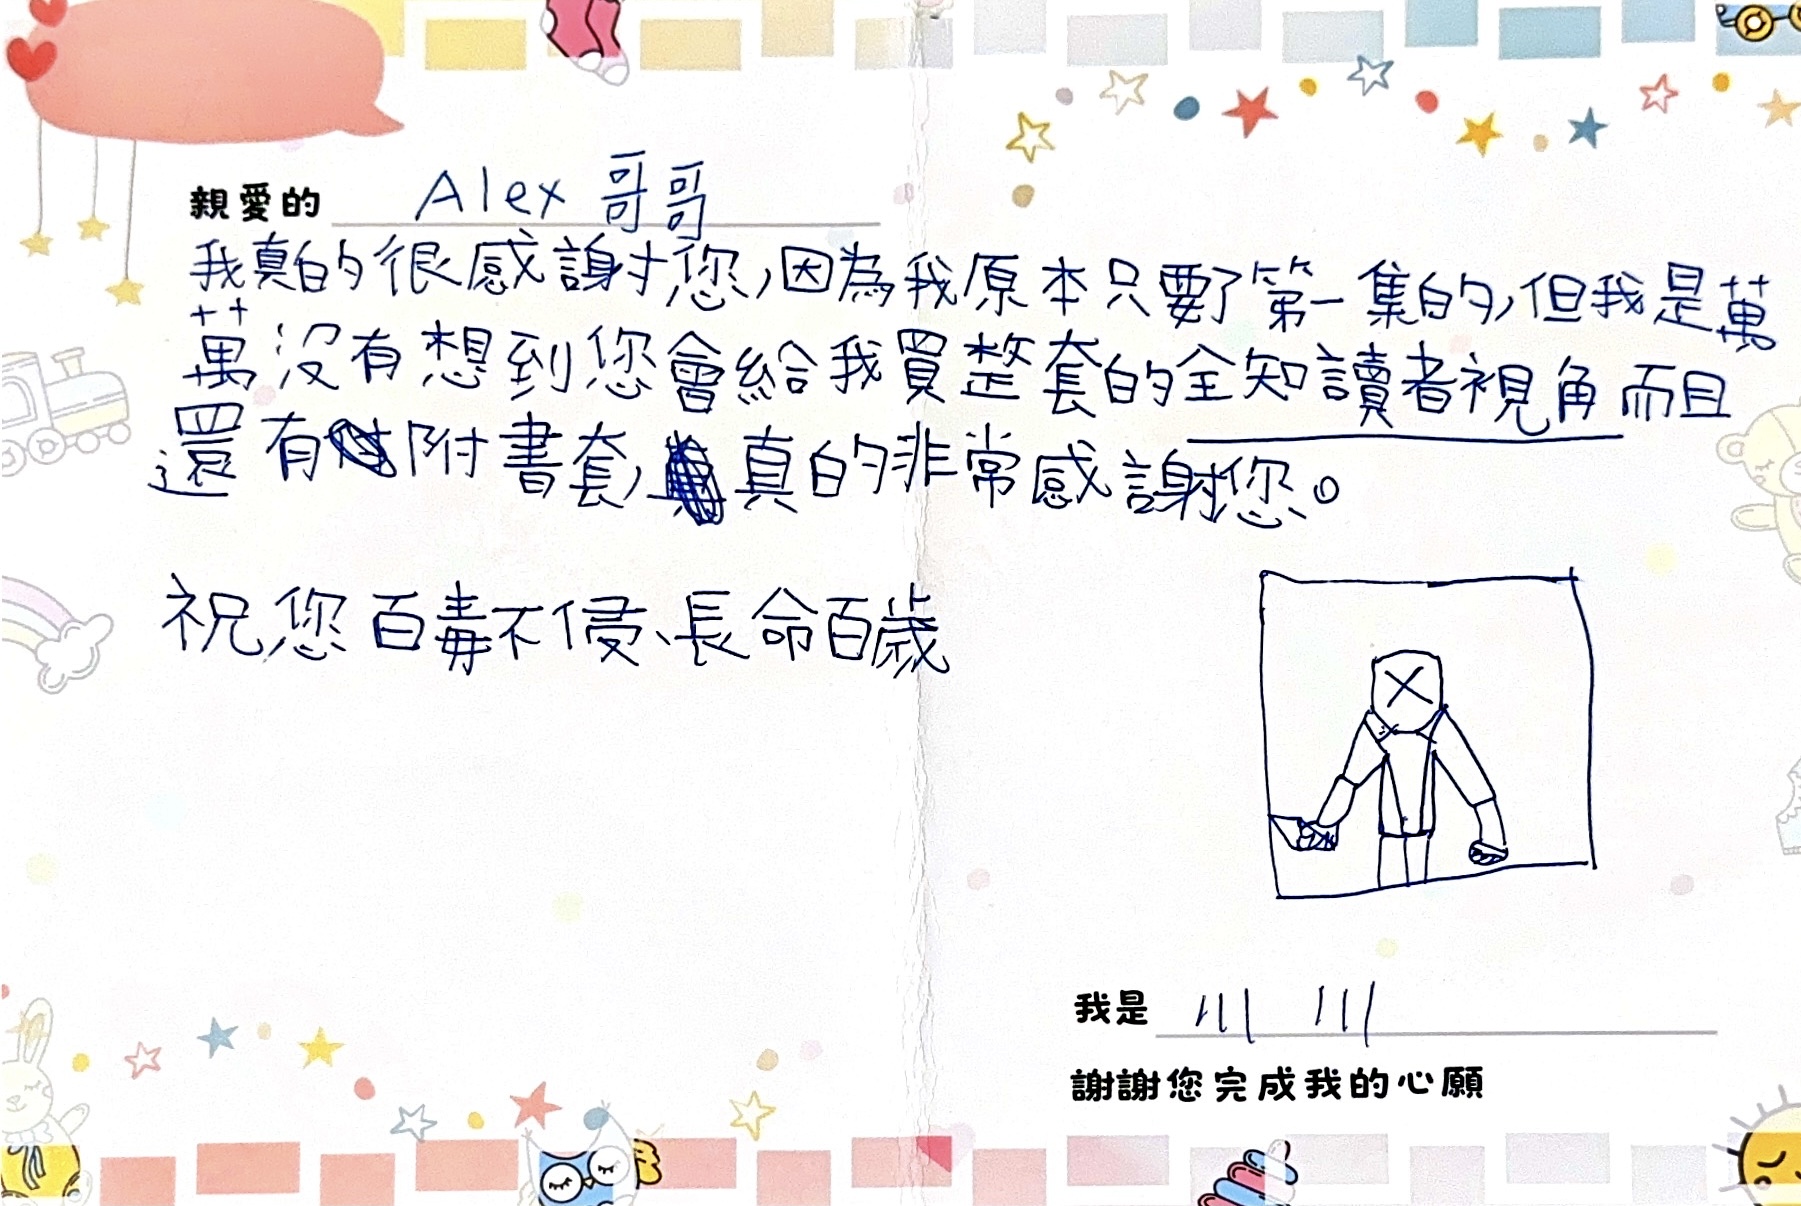 親愛的 Alex 哥哥
我真的很感謝您,因為我原本只要了第一集的,但我是萬
萬沒有想到您會給我買整套的全知讀者視角而且
還有附書套,真的非常感謝您。
祝您百毒不侵、長命百歲
我是 川川
謝謝您完成我的心願